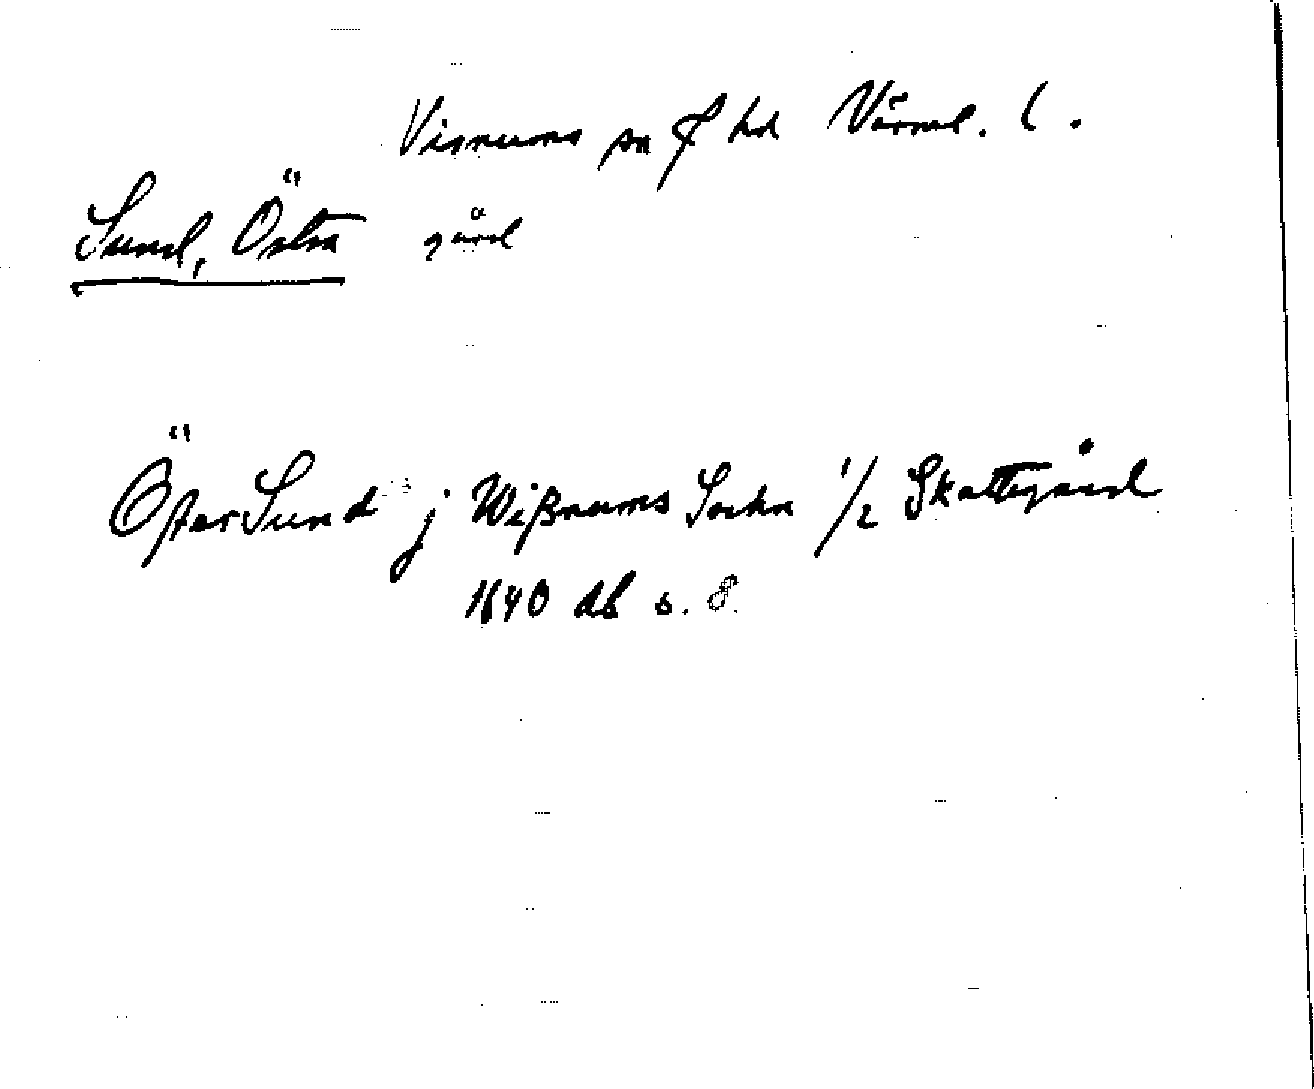 Visnums sn f hd Värml. l.
Sund, Östra gård
ÖsterSund j Wißnums Sockn 1/2 Skattegård
1640 db s. 8.